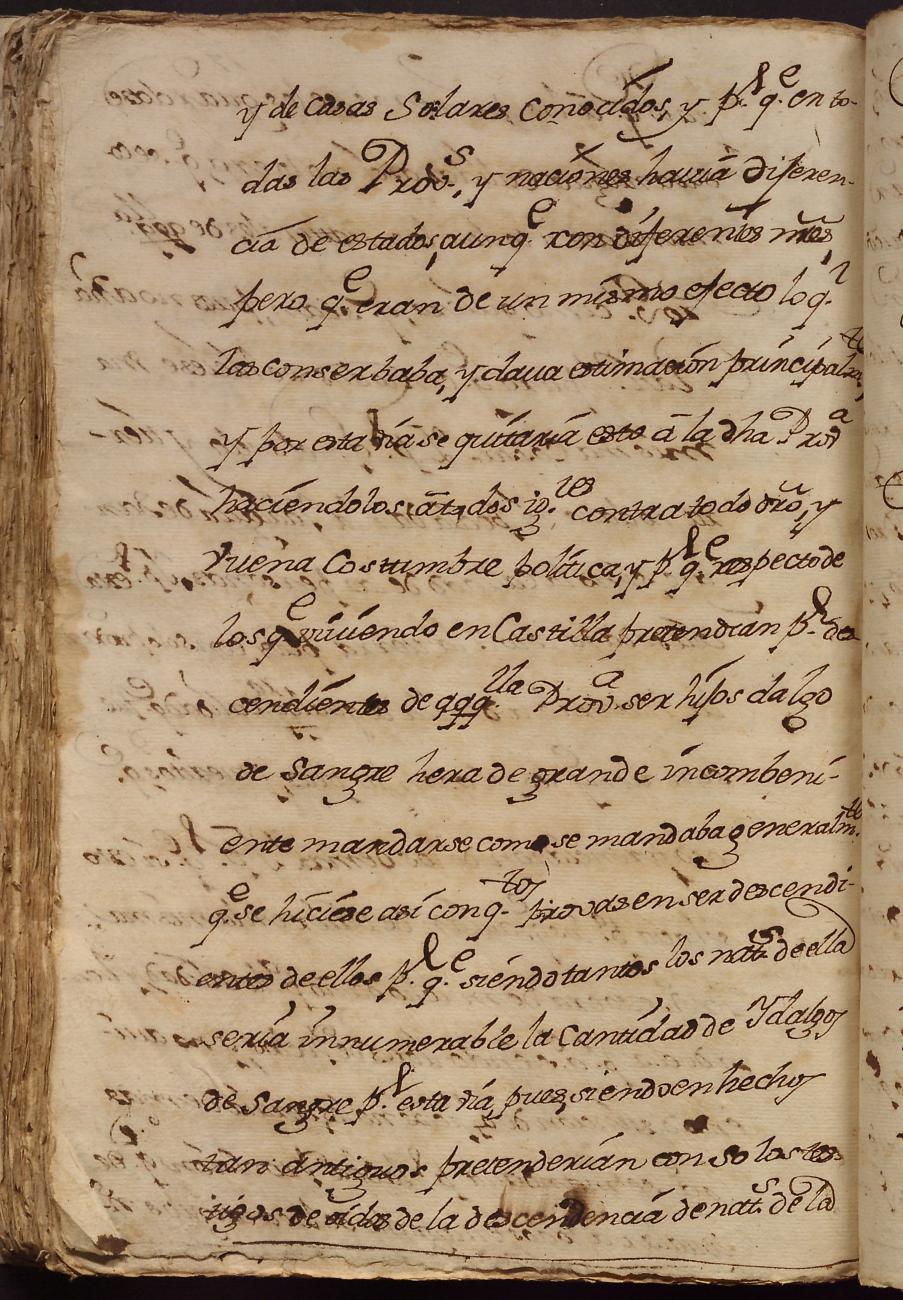 y de casas Solares conocidos, y pr. qe. en to-
das las Provs., y naciones havia diferen-
cia de estados, aunqe. con diferentes nres.
pero qe. eran de un mismo efecto lo ql.
las conserbaba, y dava estimacion principalmte.
y por esta via se quitaria esto â la dha Prova.
haciendolos â todos igles. contra todo dro, y
buena Costumbre politica, y pr. qe. respecto de
los qe. viviendo en Castilla pretendian pr. des
cendientes de aqlla. Prova. ser hijos dalgo
de Sangre hera de grande incombeni-
ente mandarse como se mandaba generalmte.
qe. se hiciese asi con qtos. provasen ser descendi-
entes de ellos pr. qe. siendo tantos los nats. de ella
seria innumerable la Cantidad de Ydalgos
de Sangre pr. esta via, pues siendo en hechos
tan antiguos pretenderian con solos tes-
tigos de oidas de la descendencia de nats. de la